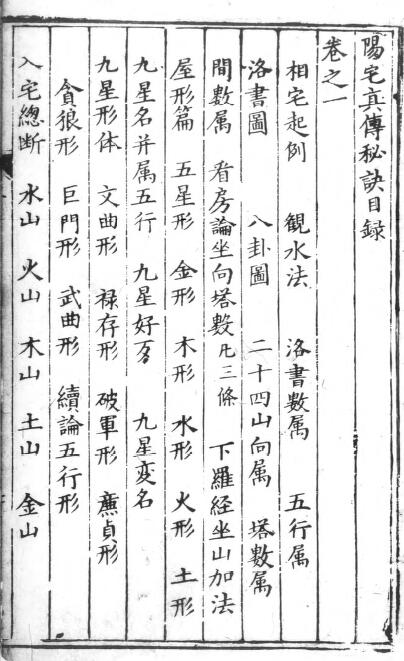 陽宅真傳秘訣目録
卷之一
相宅起例 観水法 洛書數属 五行属
洛書圖 八卦圖 二十四山向属 塔數属
間數属 看房論坐向塔數凡三條 下羅経坐山加法
屋形篇 五星形 金形 木形 水形 火形 土形
九星名并属五行 九星好歹 九星变名
九星形体 文曲形 禄存形 破軍形 廉貞形
貪狼形 巨門形 武曲形 續論五行形
入宅總断 水山 火山 木山 土山 金山